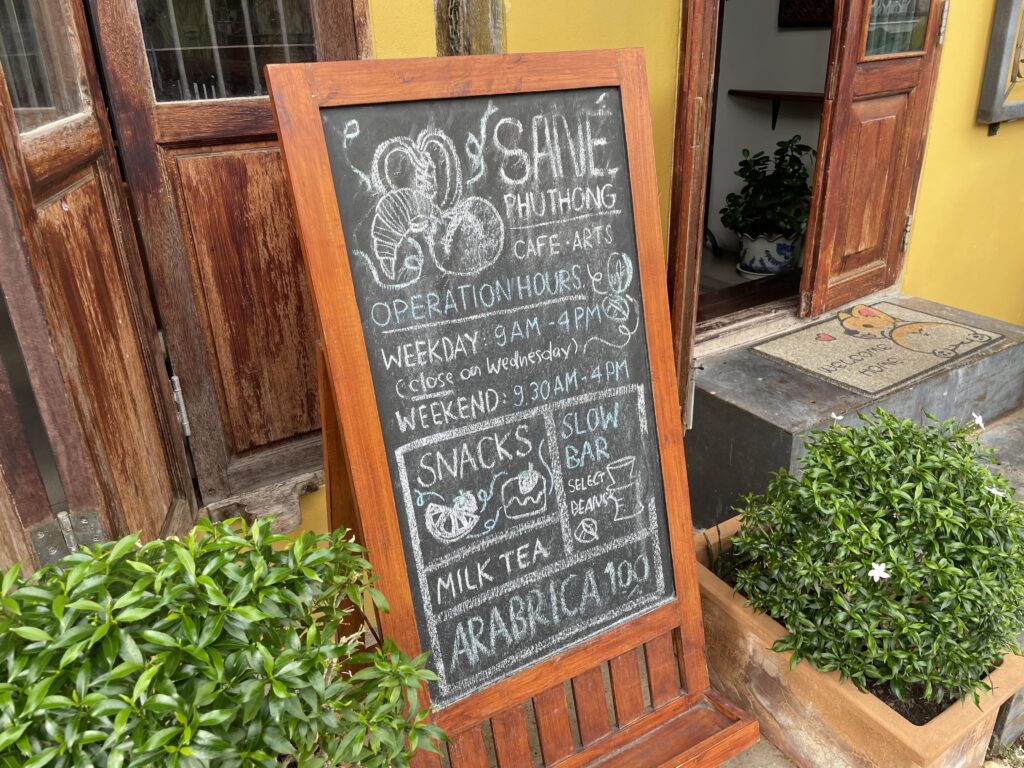 SANÉ
PHUTHONG
CAFE · ARTS
OPERATION HOURS.
WEEKDAY: 9AM - 4PM
(close on Wednesday)
WEEKEND: 9.30AM-4PM
SNACKS
SLOW
BAR
SELECT
BEANS
MILK TEA
ARABRICA 100
WELCOME
HOME